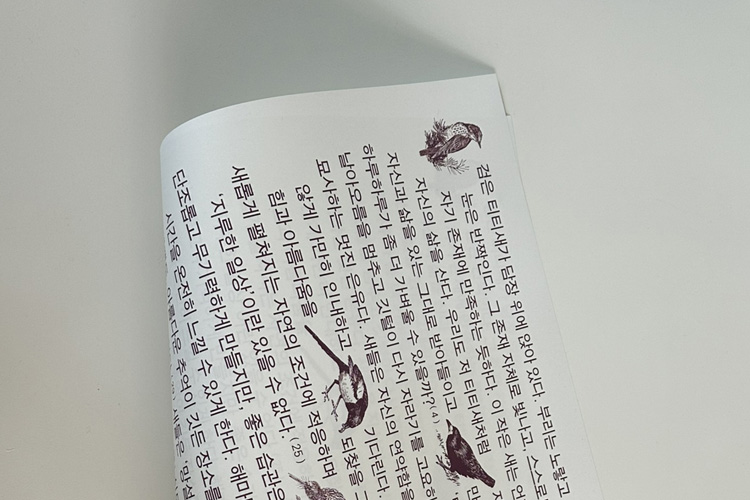 검은 티티새가 담장 위에 앉아 있다. 부리는 노랗고
눈은 반짝인다. 그 존재 자체로 빛나고, 스스로
자기 존재에 만족하는 듯하다. 이 작은 새는
자신의 삶을 산다. 우리도 저 티티새처럼
자신과 삶을 있는 그대로 받아들이고
하루하루가 좀 더 가벼울 수 있을까?
날아오름을 멈추고 깃털이 다시 자라기를
묘사하는 멋진 은유다. 새들은 자신의 연약함을
않게 가만히 인내하고 기다린다.
힘과 아름다움을 되찾을
새롭게 펼쳐지는 자연의 조건에 적응하며
'지루한 일상'이란 있을 수 없다. (25)
단조롭고 무기력하게 만들지만, 좋은 습관은
시간을 온전히 느낄 수 있게 한다. 해마다
아름다운 추억이 깃든 장소를
새들은